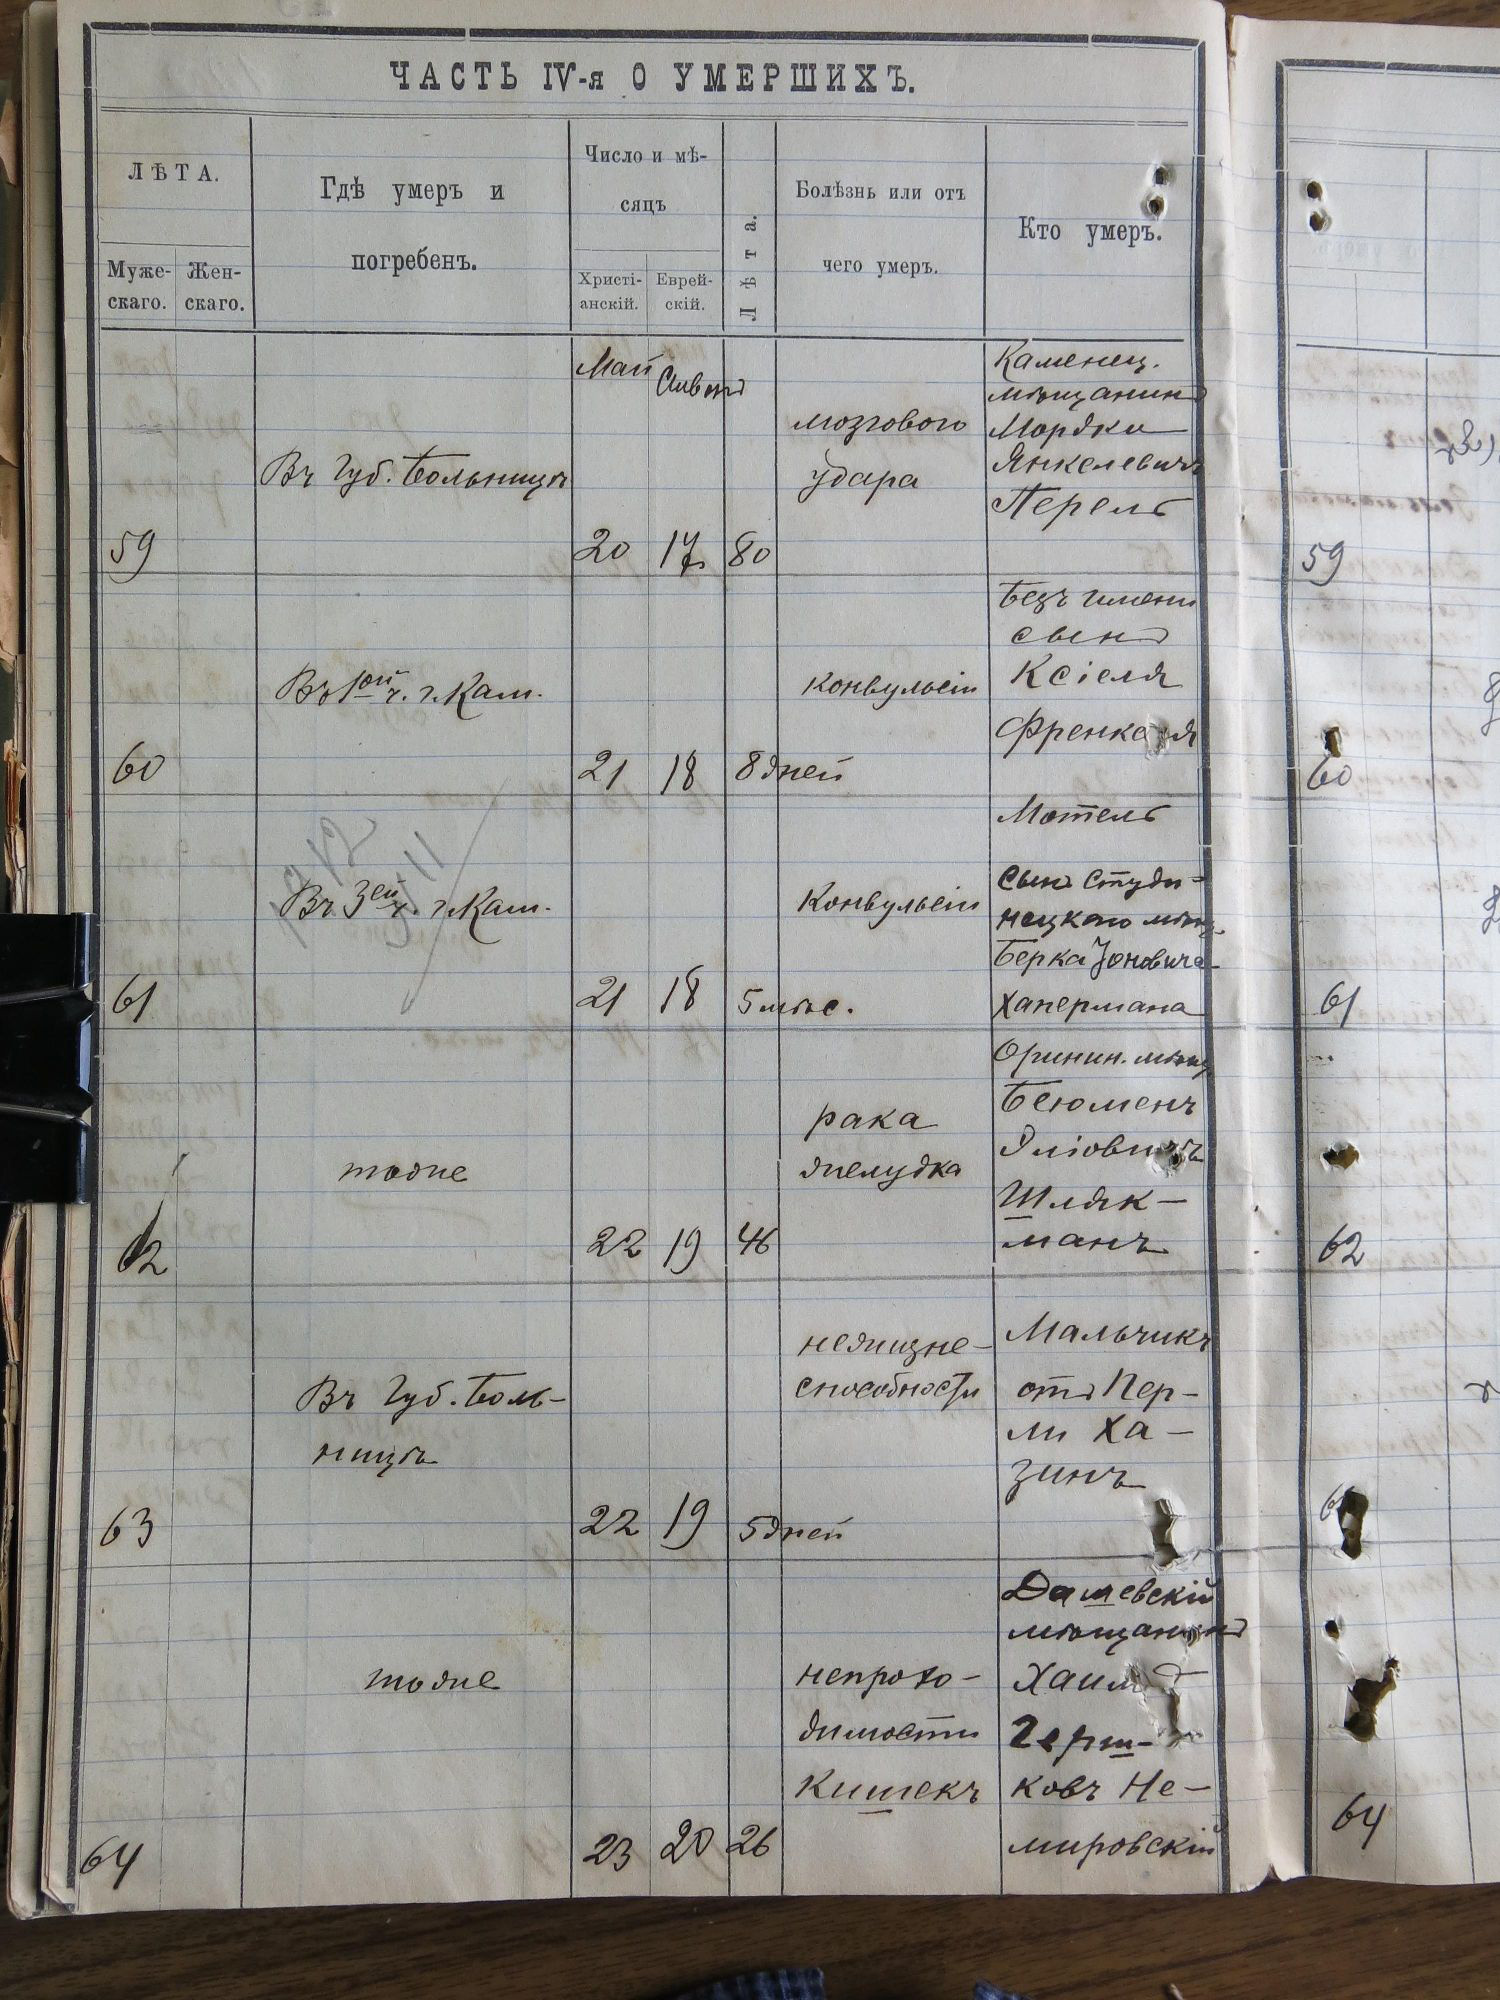 ЧАСТЬ IV-я О УМЕРШИХЪ.
ЛѢТА.
Муже-
скаго.
Жен-
скаго.
Гдѣ умеръ и
погребенъ.
Число и мѣ-
сяцъ
Христі-
анскій.
Еврей-
скій.
Лѣта.
Болѣзнь или отъ
чего умеръ.
Кто умеръ.
59
Въ Губ. больницѣ
Май
20
Сивонъ
17
80
мозгового
удара
Каменец.
мѣщанинъ
Мордко
Янкелевичъ
Перель
60
Въ 1ой ч. г. Кам.
21
18
8 дней
конвульсіи
Безъ имени
сынъ
Ксіеля
Френкеля
61
Въ 3ей ч. г. Кам.
21
18
5 мѣс.
Конвульсіи
Мотель
сынъ Студе-
нецкого мѣщ.
Берка Іоновича
Хапермана
62
тоже
22
19
46
рака
желудка
Оринин. мѣщ.
Беюменъ
Эліовичъ
Шляк-
манъ
63
Въ Губ. боль-
ницѣ
22
19
5 дней
нежизне-
способности
Мальчикъ
отъ Пер-
ли Ха-
зинъ
64
тоже
23
20
26
непрохо-
димости
кишекъ
Дашевскій
мѣщанинъ
Хаимъ
Герш-
ковъ Не-
мировскій
59
60
61
62
64